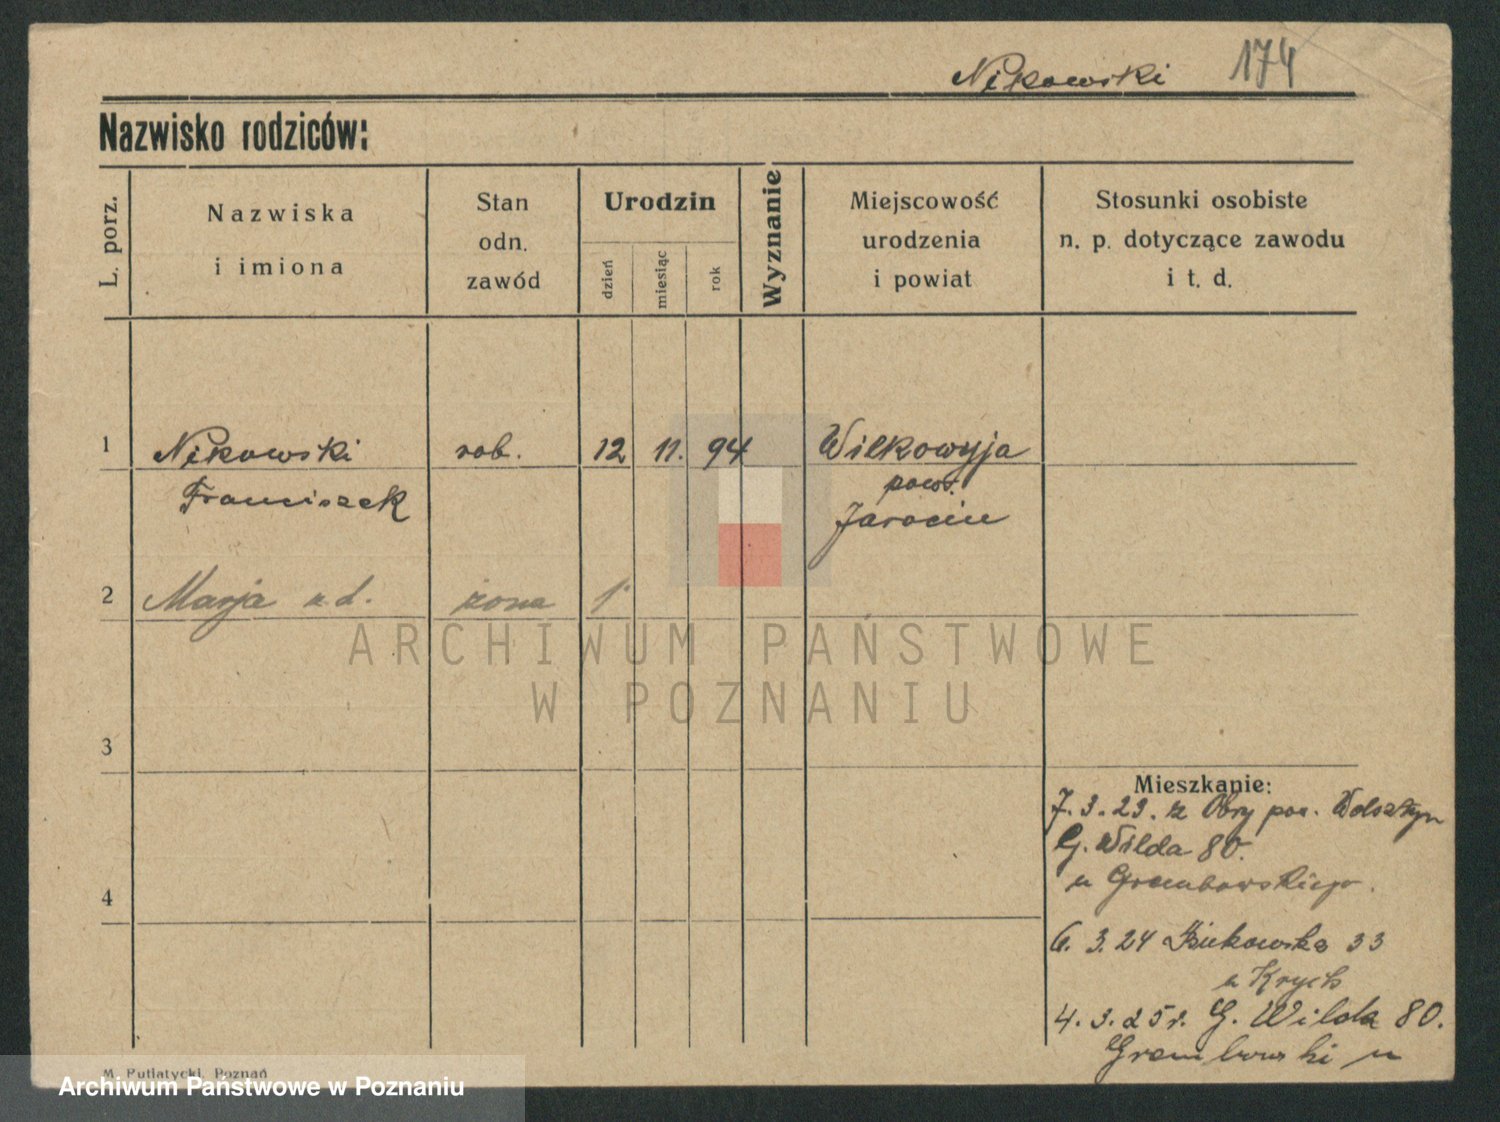 Nikowski 174
Nazwisko rodziców:
L. porz.
Nazwiska
i imiona
Stan
odn.
zawód
Urodzin
dzień
miesiąc
rok
Wyznanie
Miejscowość
urodzenia
i powiat
Stosunki osobiste
n. p. dotyczące zawodu
i t. d.
1 Nikowski rob. 12 11. 94 Wilkowyja
Franciszek pow.
Jarocin
2 Marja z d. żona
ARCHIWUM PAŃSTWOWE
W POZNANIU
3
Mieszkanie:
7.3.23. z Obry pow. Wolsztyn
G. Wilda 80.
u Grembowskiego.
4
6. 3.24 Bukowska 33
u Krych
4. 3. 25 r. G. Wilda 80.
Grembowski u
M. Putiatycki, Poznań
Archiwum Państwowe w Poznaniu